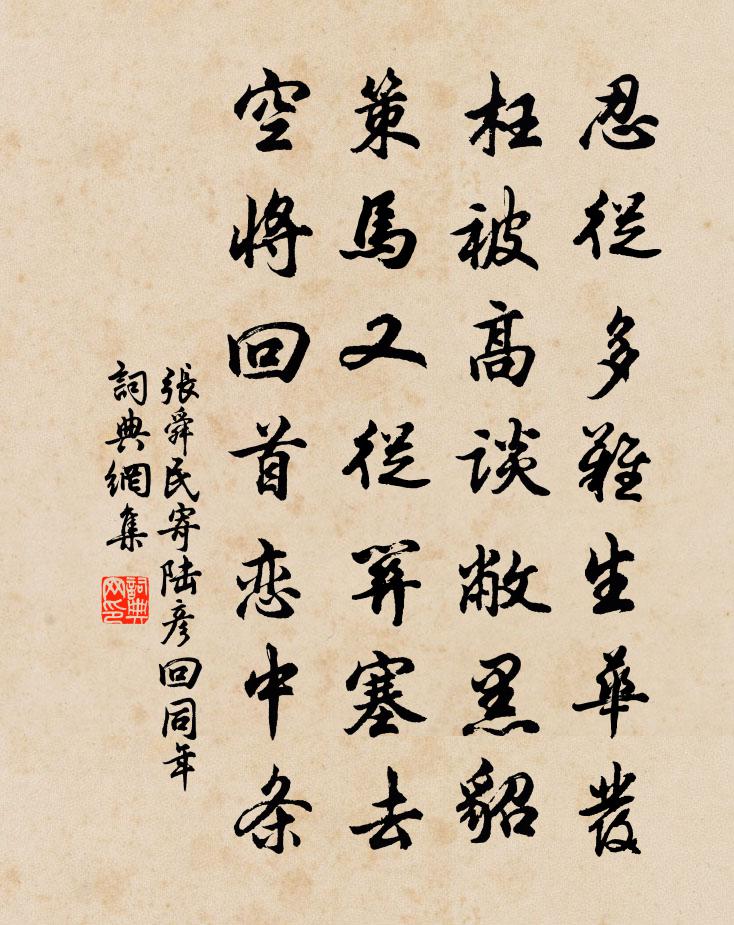 忍從多難生華發
枉被髙談敝黑貂
策馬又從笄塞去
空將回首恋中条
張舜民寄陆彦回同年
詞典網集
詞典
网印